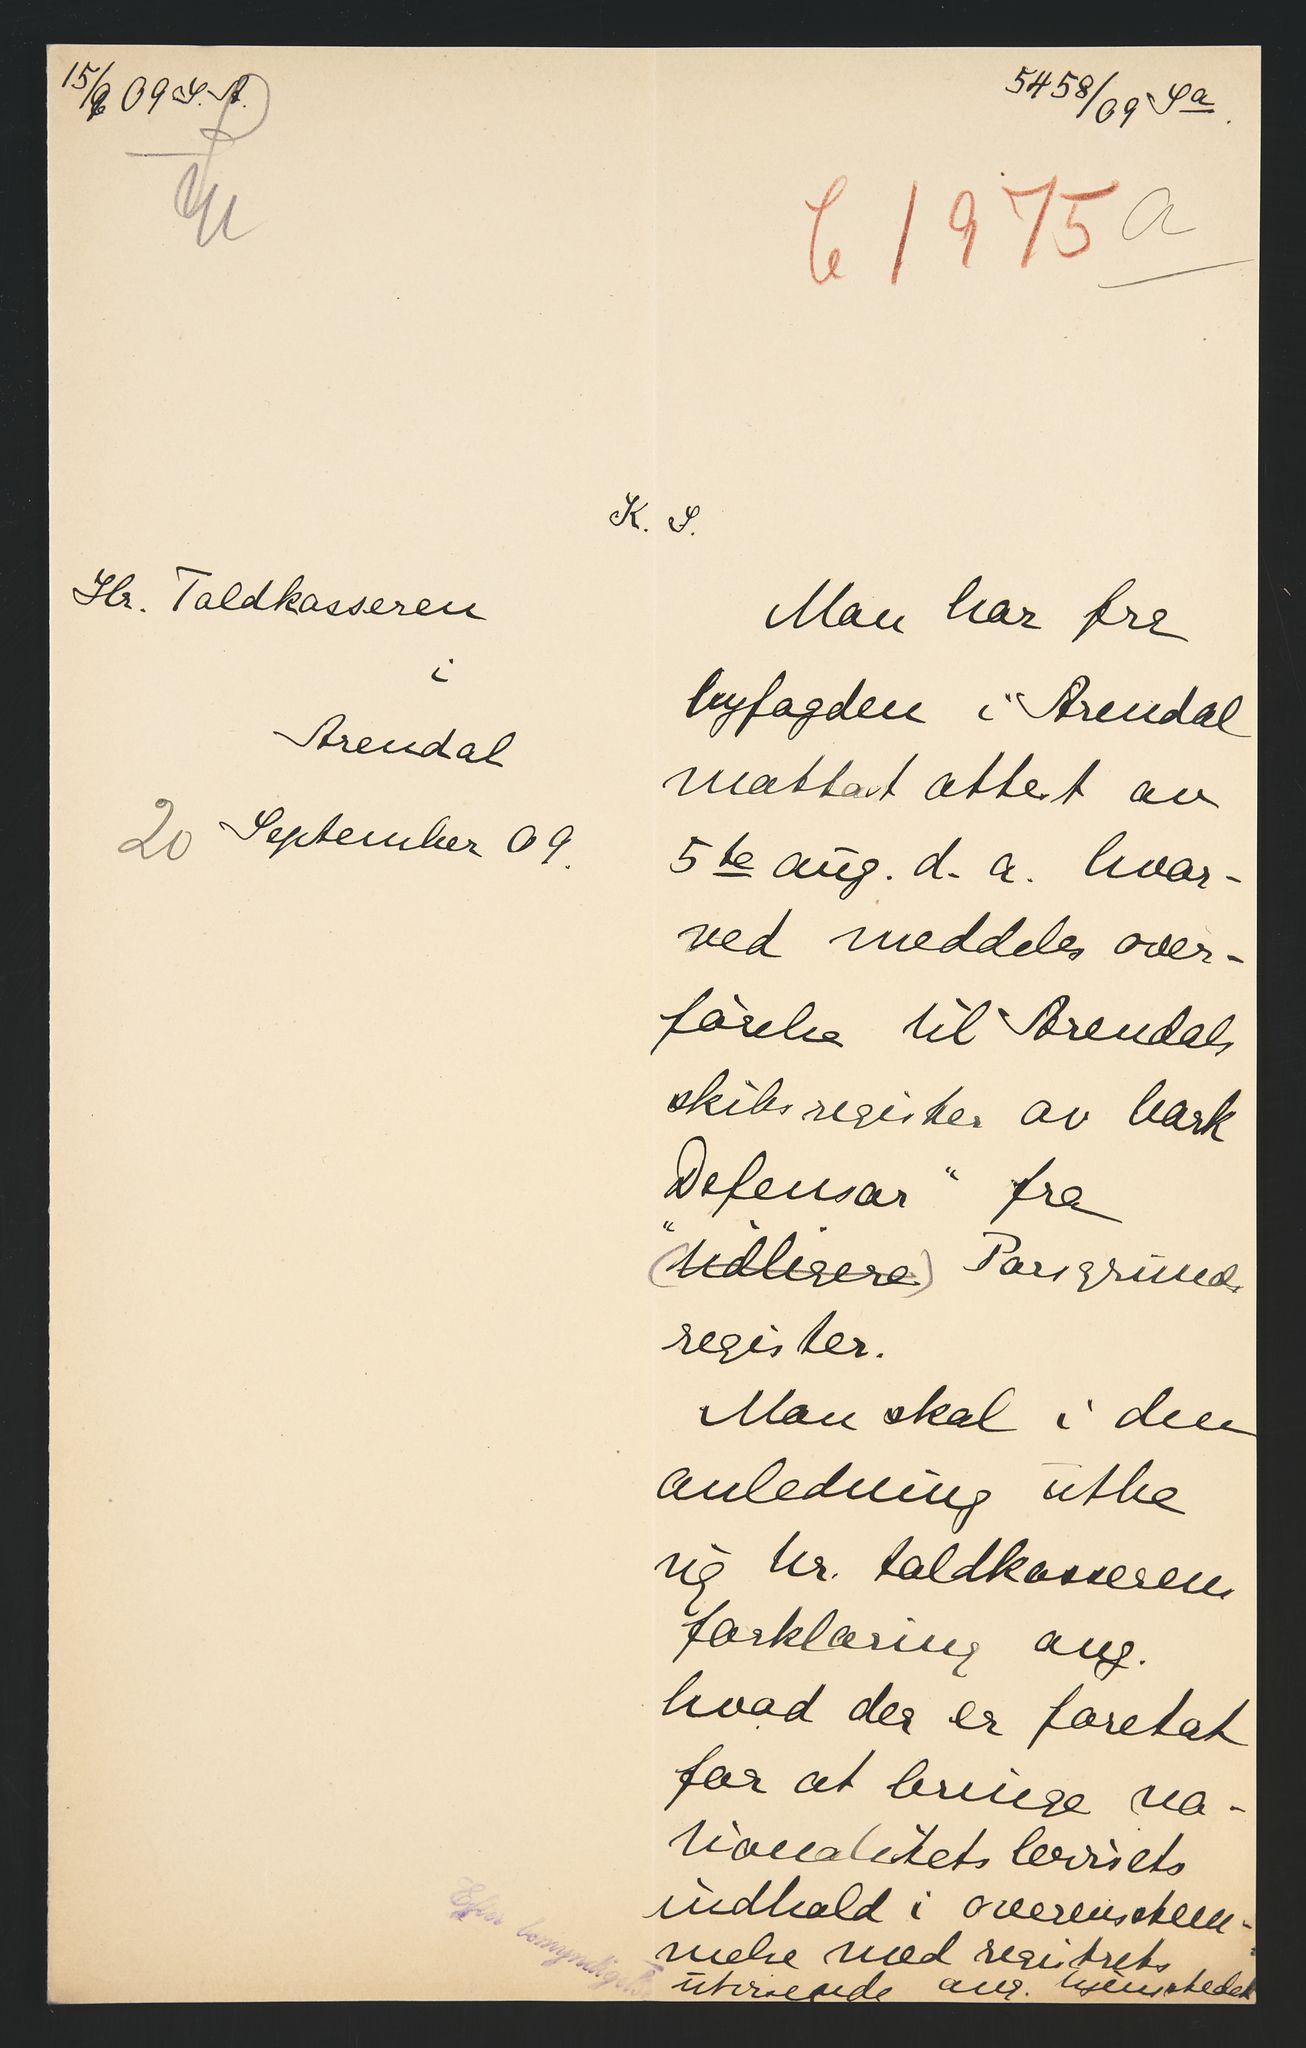 15/9 09 S. A.
5458/09 Sa.
C 1975 a
K. S.
Hr. Toldkasseren
i
Arendal
20 September 09.
Man har fra
byfogden i Arendal
mottat attest av
5te aug. d. a. hvor-
ved meddeles over-
førelse til Arendals
skibsregister av bark
"Defensor" fra
(tidligere) Porsgrunds
register.
Man skal i den
anledning utbe
sig hr. toldkasserens
forklaring ang.
hvad der er foretat
for at bringe na-
tionalitetsbevisets
indhold i overensstem-
melse med registrets
utvisende ang. hjemstedet
Efter bemyndigelse